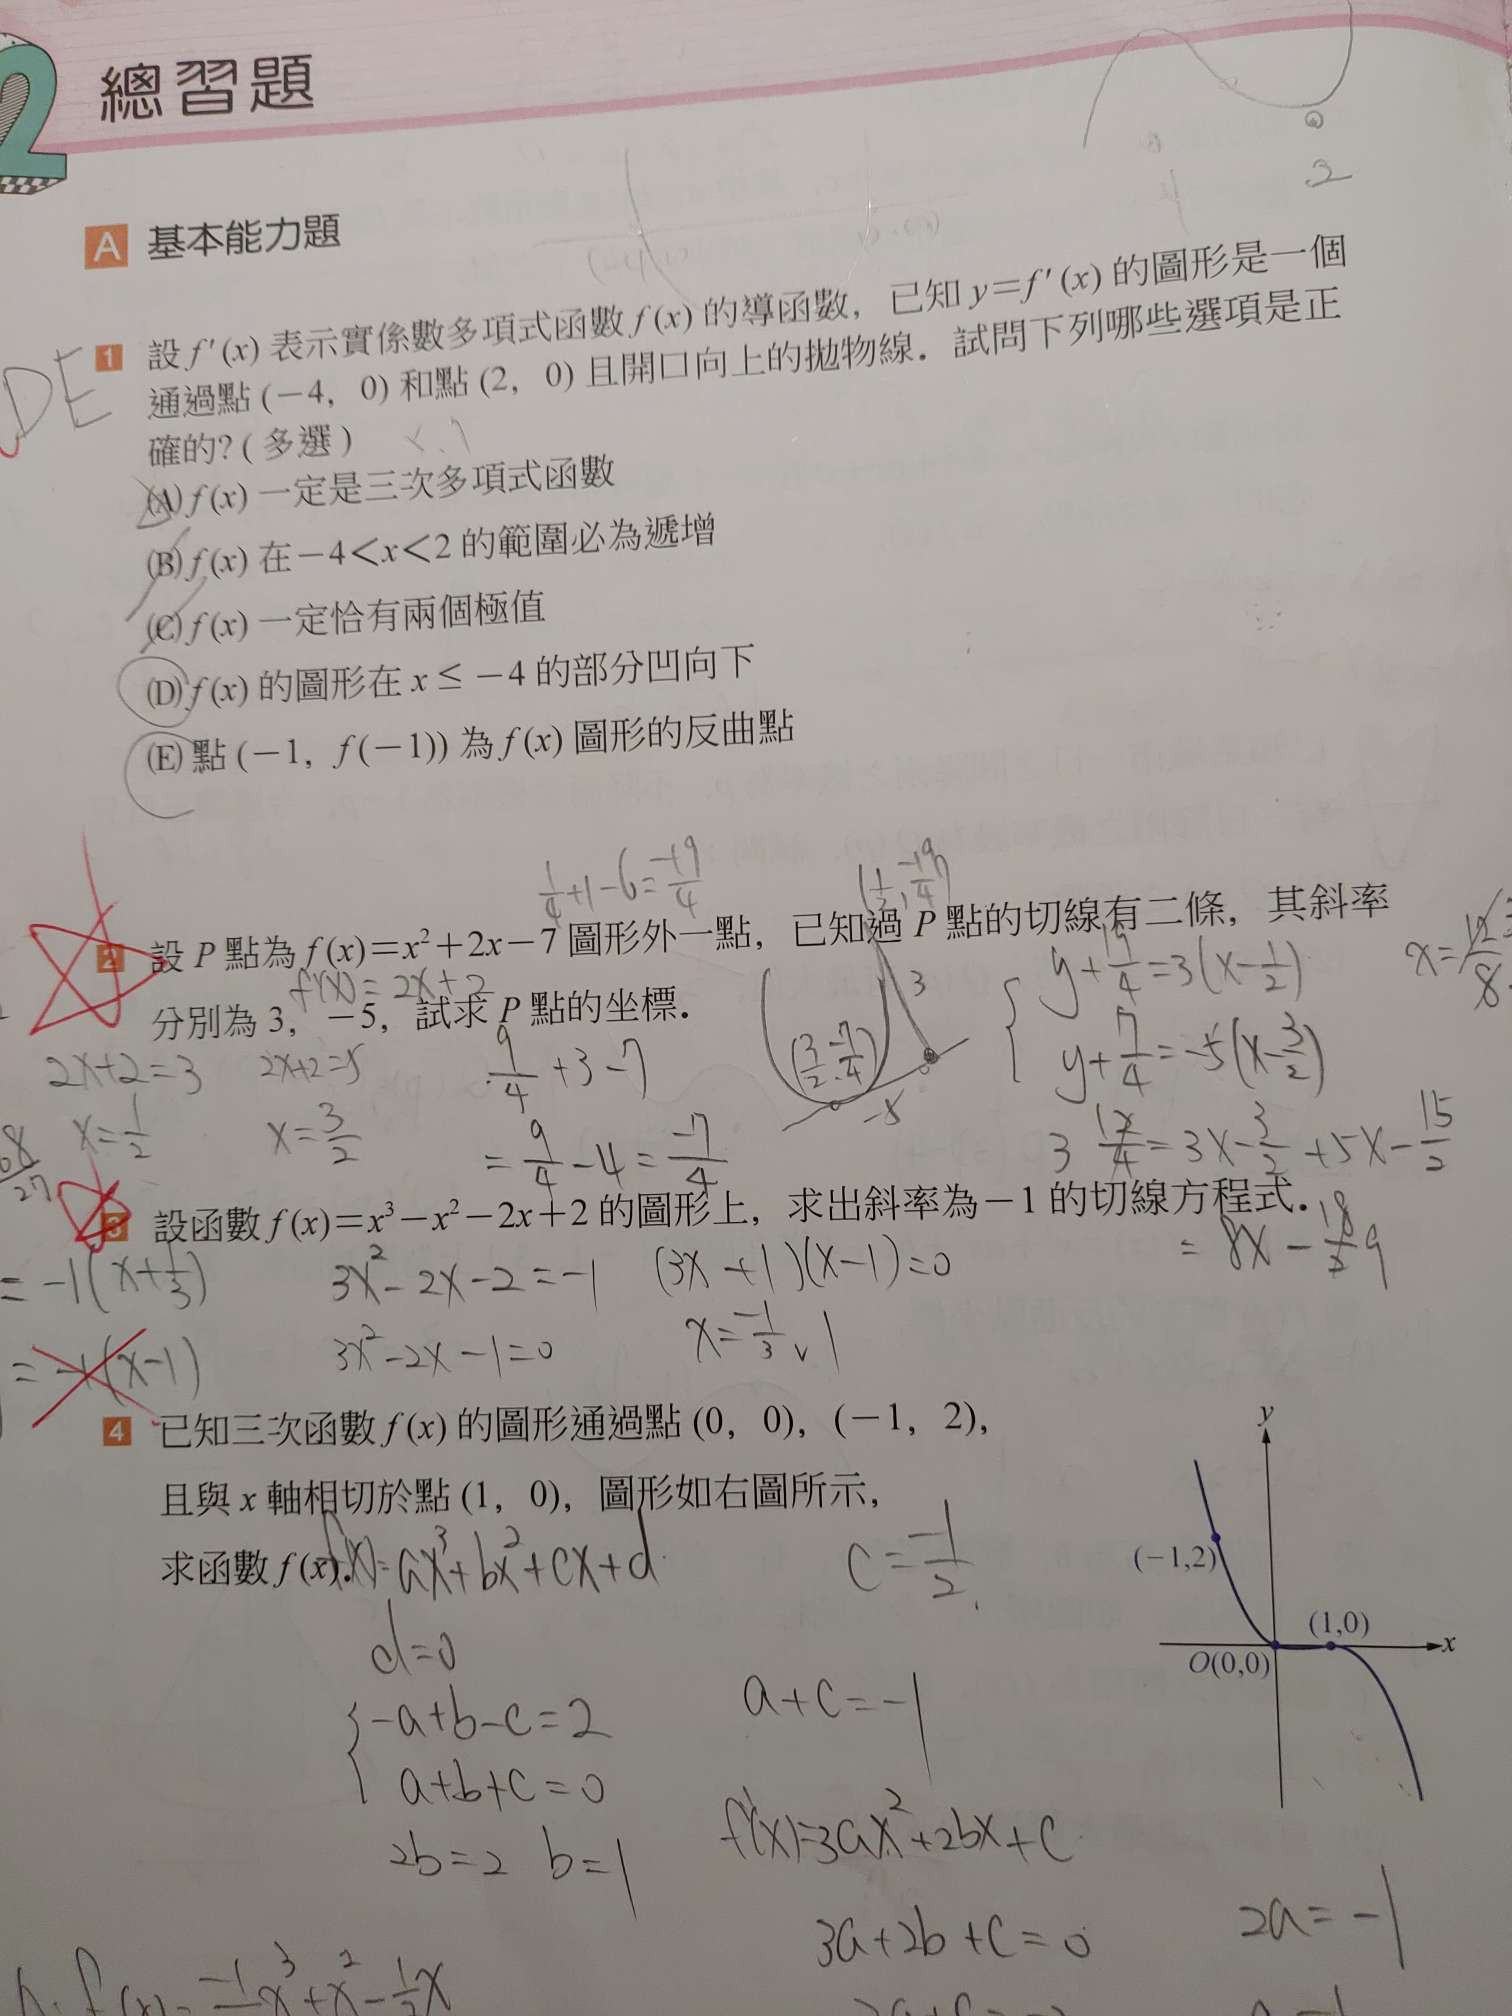 2
總習題
2
A 基本能力題
DE
1 設 f'(x) 表示實係數多項式函數 f(x) 的導函數，已知 y=f'(x) 的圖形是一個
通過點 (−4，0) 和點 (2，0) 且開口向上的拋物線．試問下列哪些選項是正
確的?(多選)
(A) f(x) 一定是三次多項式函數
(B) f(x) 在 −4<x<2 的範圍必為遞增
(C) f(x) 一定恰有兩個極值
(D) f(x) 的圖形在 x ≤ −4 的部分凹向下
(E) 點 (−1，f(−1)) 為 f(x) 圖形的反曲點
1/4+1−6=−19/4
(1/2, −19/4)
2 設 P 點為 f(x)=x²+2x−7 圖形外一點，已知過 P 點的切線有二條，其斜率
f'(x)=2x+2
分別為 3，−5，試求 P 點的坐標．
3
(3/2, −7/4)
−5
y+19/4=3(x−1/2)
y+7/4=−5(x−3/2)
2x+2=3
2x+2=5
9/4+3−7
x=1/2
x=3/2
=9/4−4=−7/4
3 12/4=3x−3/2+5x−15/2
=8x−18/2 9
3 設函數 f(x)=x³−x²−2x+2 的圖形上，求出斜率為 −1 的切線方程式．
=−1(x+1/3)
3x²−2x−2=−1
(3x+1)(x−1)=0
=−1(x−1)
3x²−2x−1=0
x=−1/3，1
4 已知三次函數 f(x) 的圖形通過點 (0，0)，(−1，2)，
且與 x 軸相切於點 (1，0)，圖形如右圖所示，
求函數 f(x)．
f(x)=ax³+bx²+cx+d
c=−1/2
y
(−1,2)
(1,0)
x
O(0,0)
d=0
−a+b−c=2
a+c=−1
a+b+c=0
2b=2 b=1
f'(x)=3ax²+2bx+c
3a+2b+c=0
2a=−1